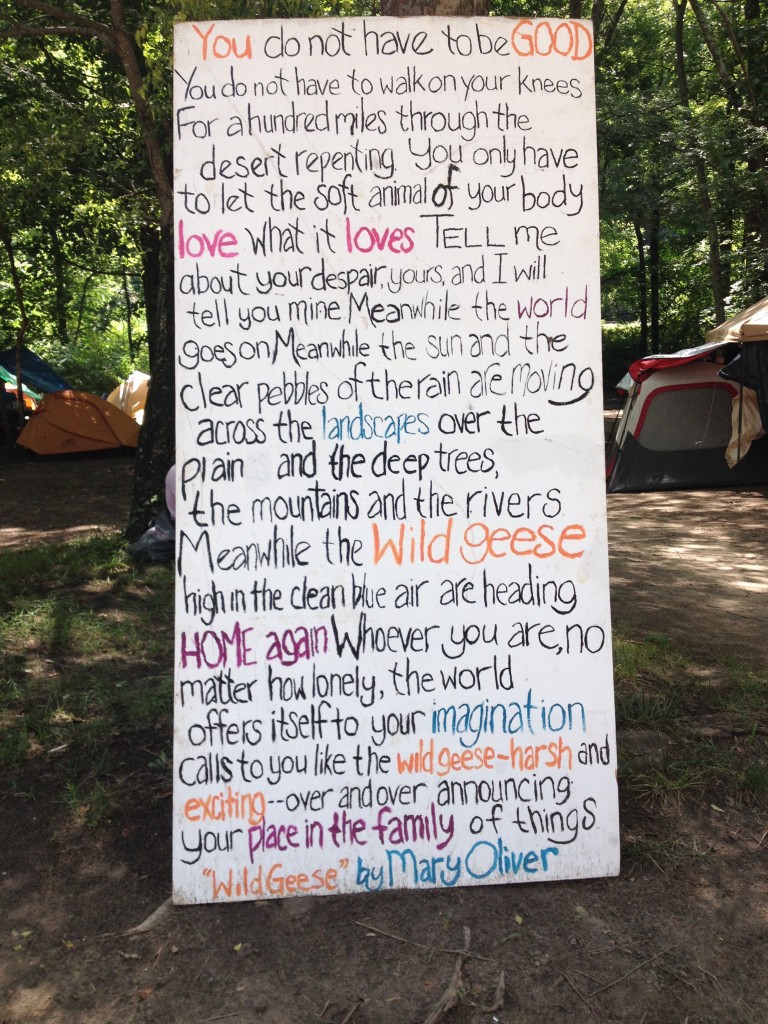 You do not have to be GOOD
You do not have to walk on your knees
For a hundred miles through the
desert repenting. You only have
to let the soft animal of your body
love what it loves TELL me
about your despair, yours, and I will
tell you mine Meanwhile the world
goes on Meanwhile the sun and the
clear pebbles of the rain are moving
across the landscapes over the
plain and the deep trees,
the mountains and the rivers
Meanwhile the Wild geese
high in the clean blue air are heading
HOME again Whoever you are, no
matter how lonely, the world
offers itself to your imagination
calls to you like the wild geese-harsh and
exciting--over and over announcing
your place in the family of things
"Wild Geese" by Mary Oliver